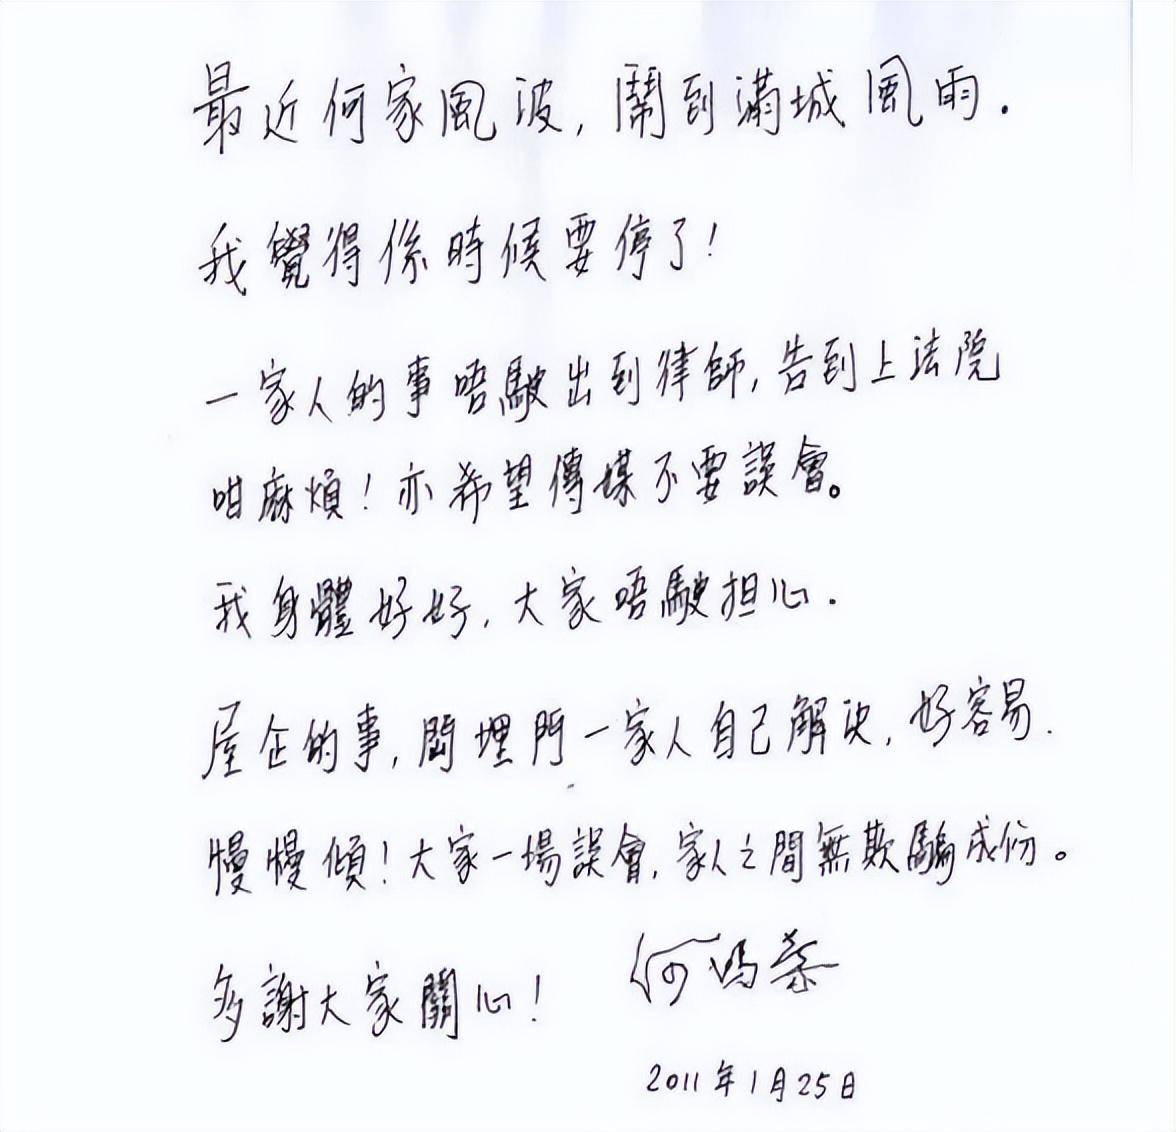 最近何家風波,鬧到滿城風雨.
我覺得係時候要停了!
一家人的事唔駛出到律師,告到上法院
咁麻煩!亦希望傳媒不要誤會。
我身體好好,大家唔駛担心.
屋企的事,関埋門一家人自己解決,好容易.
慢慢傾!大家一場誤會,家人之間無欺騙成份。
多謝大家關心!
何鴻燊
2011年1月25日